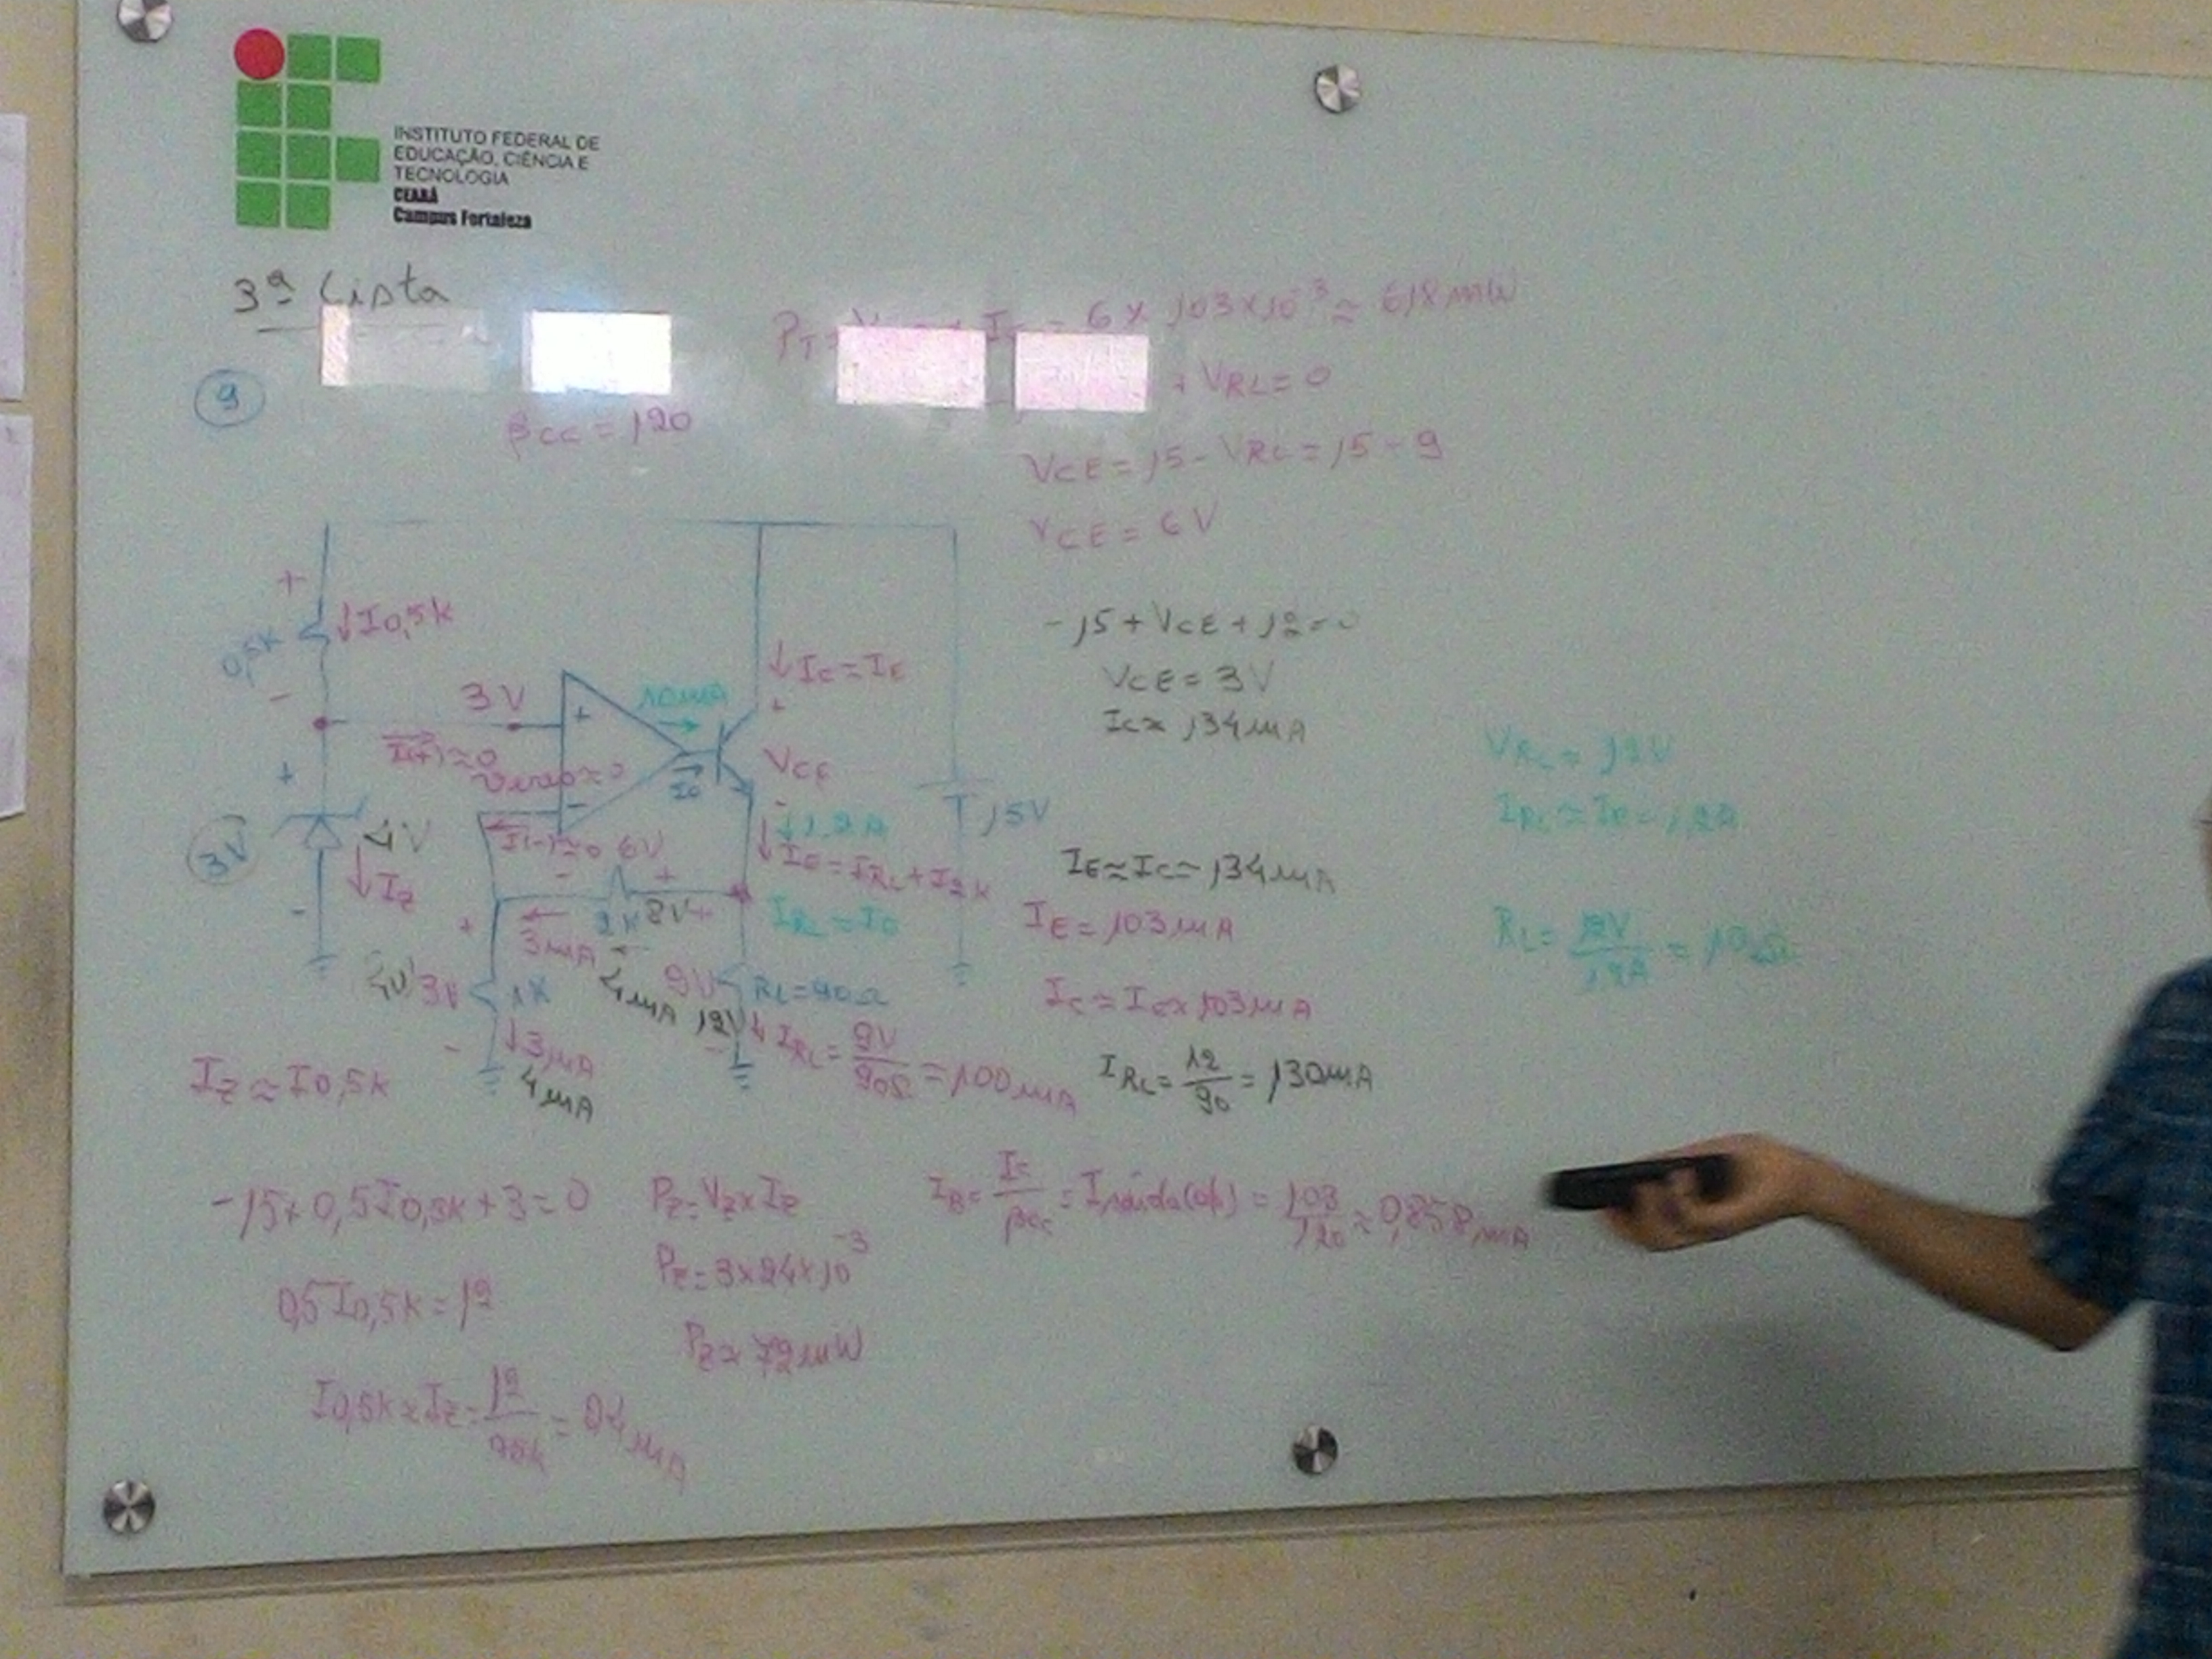 INSTITUTO FEDERAL DE
EDUCAÇÃO, CIÊNCIA E
TECNOLOGIA
CEARÁ
Campus Fortaleza
3ª Lista
9
βcc = 120
PT = 6 x 103x10⁻³ ≈ 618 mW
+ VRL = 0
VCE = 15 - VRL = 15 - 9
VCE = 6V
- 15 + VCE + 12 = 0
VCE = 3V
IC ≈ 134mA
+
↓I0,5k
0,5k
-
3V
+
10mA
↓IC ≈ IE
+
I(+) ≈ 0
≈ 0
Io
VCE
-
+
3V
4V
↓IZ
-
-
I(-) ≈ 0
6V
- +
↓1,2A
↓IE = IRL + I2k
15V
2k
8V +
3mA
4mA
IRL = Io
+
4V 3V
1k
-
↓3mA
4mA
9V
12V
RL = 90Ω
↓IRL = 9V/90Ω = 100mA
IE ≈ IC = 134mA
IE = 103mA
IC ≈ IE ≈ 103mA
IRL = 12/90 = 130mA
VRL = 12V
IRL ≈ IE = 1,2A
RL = 12V/1,2A = 10Ω
IZ ≈ I0,5k
-15 + 0,5I0,5k + 3 = 0
0,5I0,5k = 12
I0,5k ≈ IZ = 12/0,5k = 24mA
PZ = VZ x IZ
PZ = 3x24x10⁻³
PZ ≈ 72mW
IB = IC/βcc = Isaída(op) = 103/120 ≈ 0,858mA